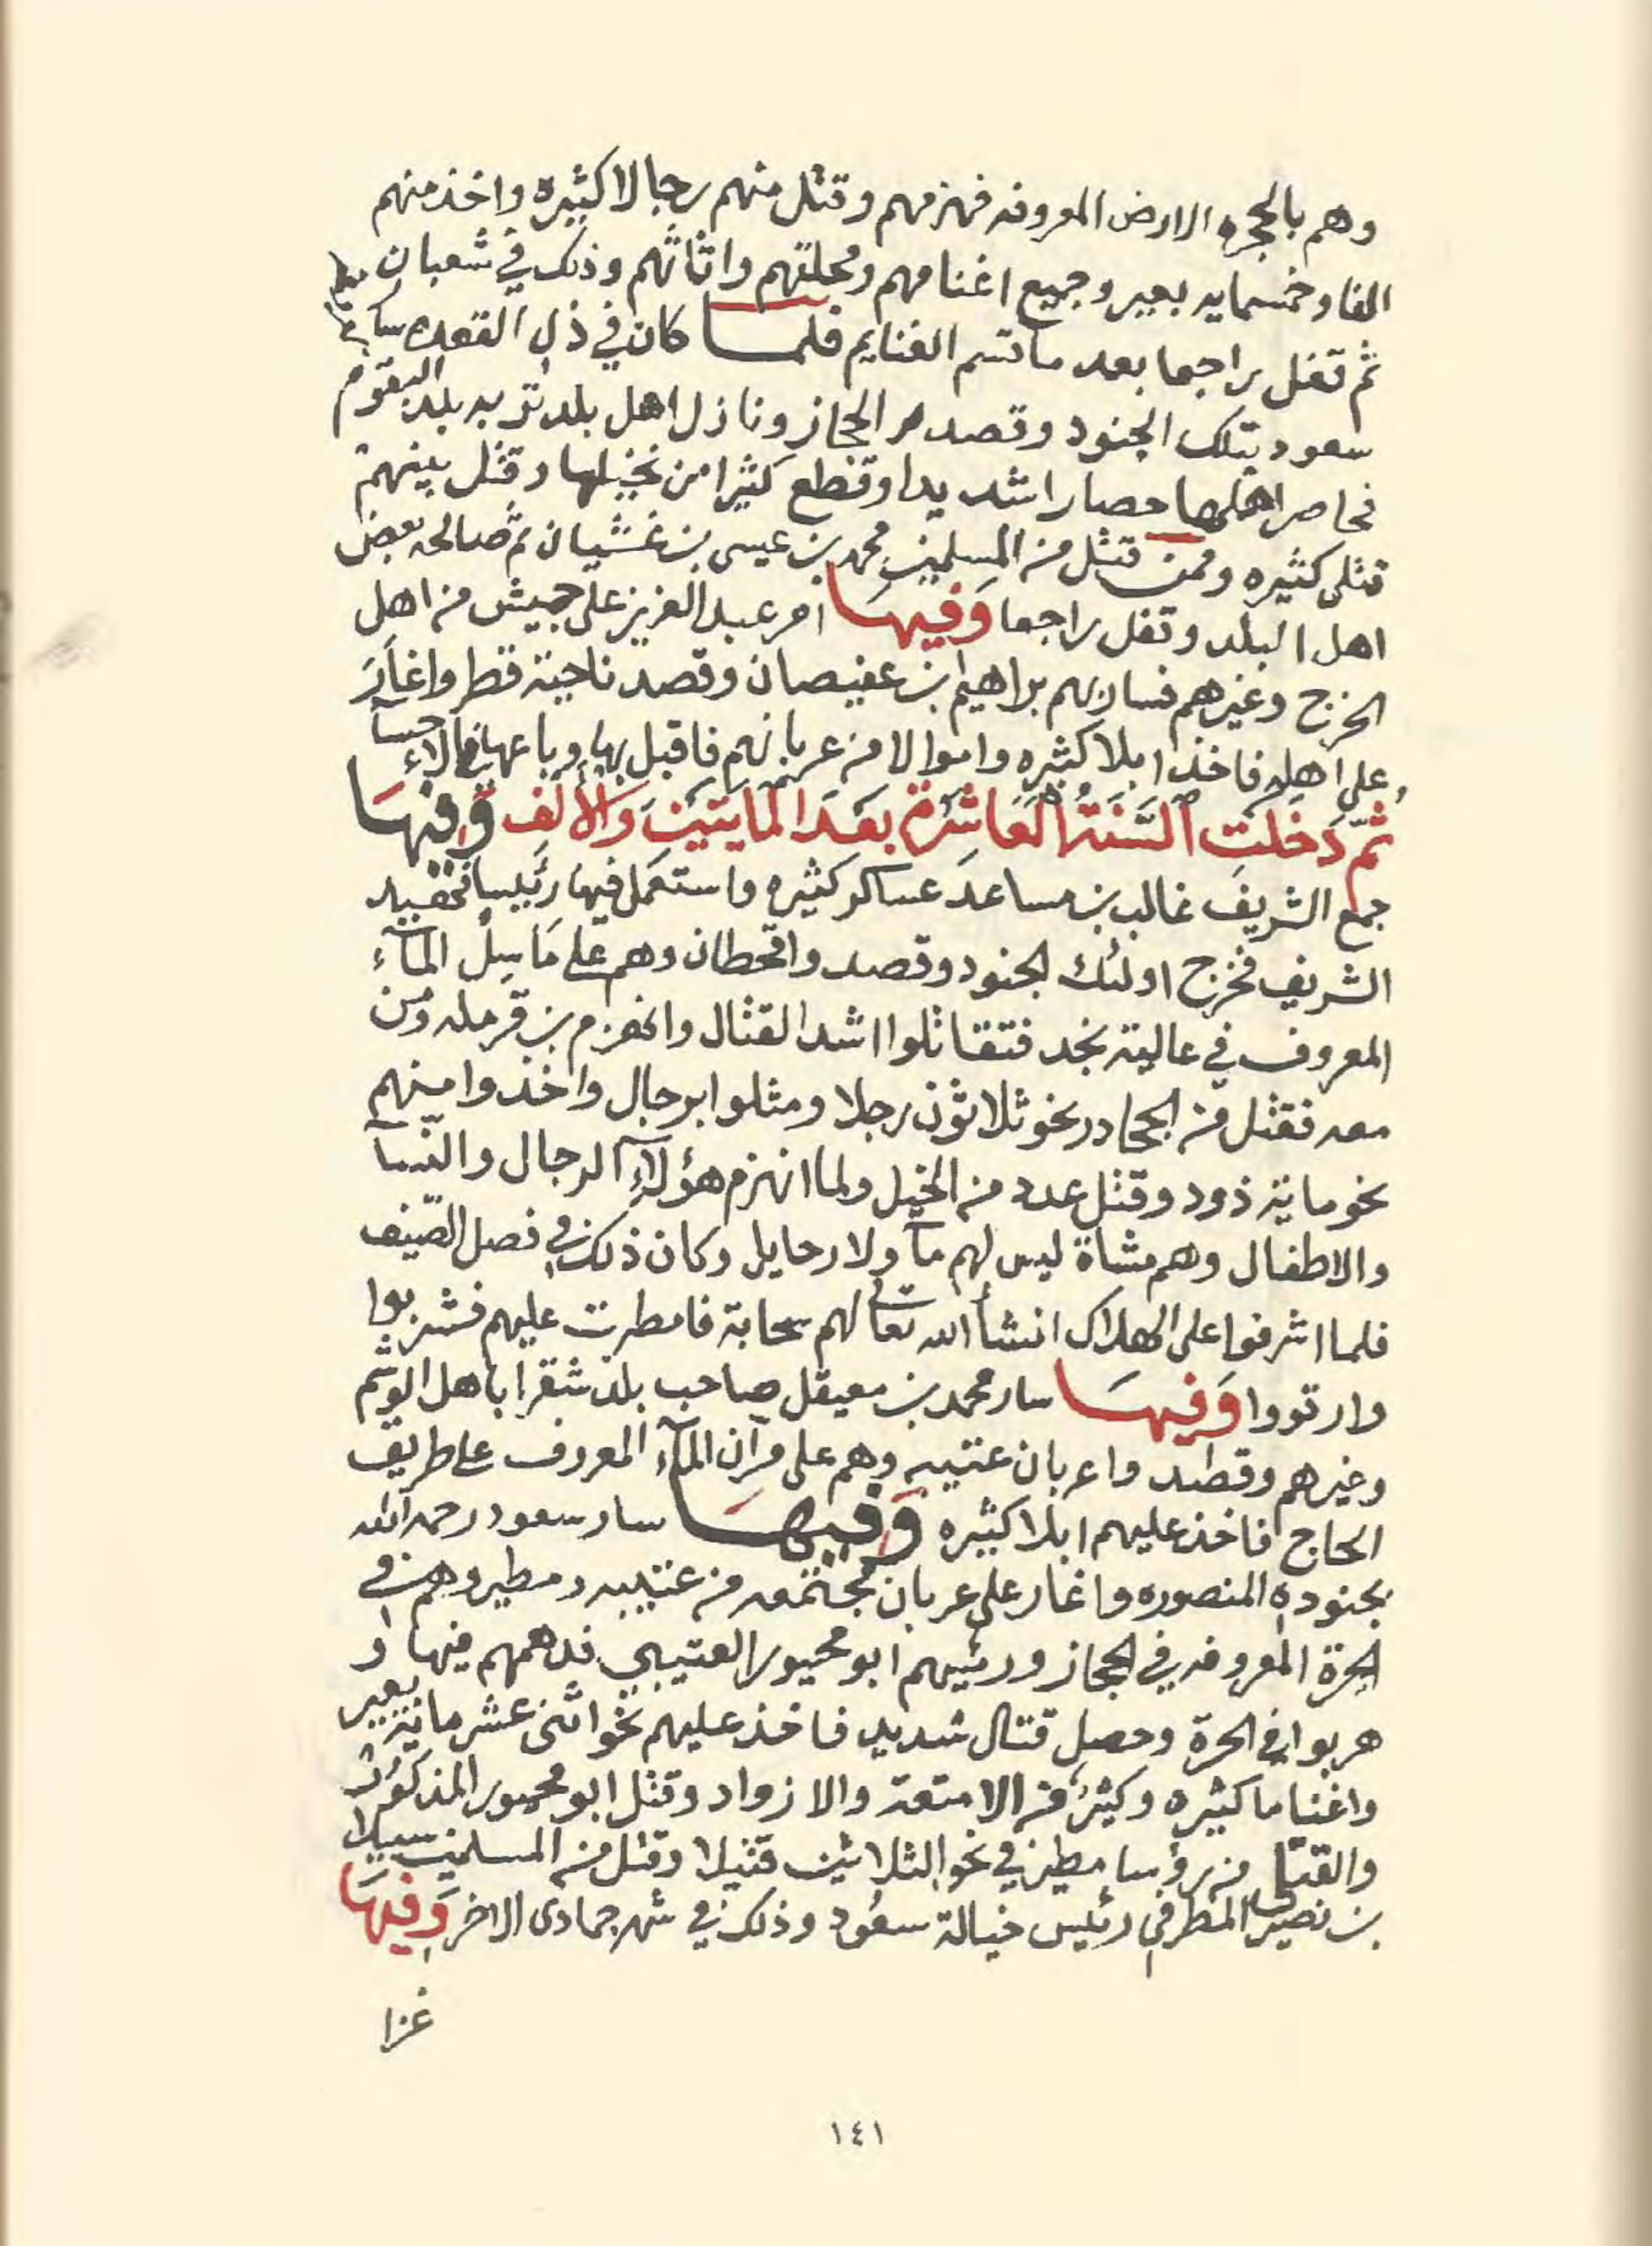 وهم بالحجره الارض المعروفه فهزمهم وقتل منهم رجالا كثيره واخذ منهم
الفا وخمسمايه بعير وجميع اغنامهم ومحلتهم واثاثهم وذلك في شعبان
ثم قفل راجعا بعد ما قسم الغنايم فلما كان في ذي القعده سار
سعود بتلك الجنود وقصد الحجاز ونازل اهل بلد تربه بلد البقوم
فحاصر اهلها حصارا شديدا وقطع كثيرا من نخيلها وقتل بينهم
قتلى كثيره وممن قتل من المسلمين محمد بن عيسى بن غشيان ثم صالحه بعض
اهل البلد وقفل راجعا وَفِيهَا امر عبد العزيز على جيش من اهل
الخرج وغيرهم فسار بهم براهيم بن عفيصان وقصد ناحية قطر واغَارَ
على اهله فاخذ ابلا كثيره واموالا من عربانهم فاقبل بها وباعها في الاحسآء
ثمّ دَخلت السَّنَةُ العَاشرَة بعَدَ المايتَين وَالألَف وَفيهَا
جمع الشريف غالب بن مساعد عساكر كثيره واستعمل فيها رئيسا فحفيد
الشريف فخرج اولئك الجنود وقصدوا قحطان وهم على مَاسِل المآء
المعروف في عالية نجد فتقاتلوا اشد القتال وانهزم بن قرمله ومن
معه فقتل من الجحادر نحو ثلاثون رجلا ومثلوا برجال واخذوا منهم
نحو ماية ذود وقتل عدد من الخيل ولما انهزم هؤلآءِ الرجال والنّسآ
والاطفال وهم مشاة ليس لهم مآ ولا رحايل وكان ذلك في فصل الصّيف
فلما اشرفوا على الهلاك انشأ الله تعالى لهم سحابة فامطرت عليهم فشربوا
وارتووا وَفيهَا سار محمد بن معيقل صاحب بلد شقرا باهل الوشم
وغيرهم وقصدوا عربان عتيبه وهم على مرّان المآء المعروف على طريق
الحاج فاخذ عليهم ابلا كثيره وَفِيهَا سار سعود رحمه الله
بجنوده المنصوره واغار على عربان مجتمعه من عتيبه ومطير وهم في
الحرة المعروفه في الحجاز ورئيسهم ابو محيور العتيبي فدهمهم فيها و
هربوا في الحرة وحصل قتال شديد فاخذ عليهم نحو اثنى عشر ماية بعير
واغناما كثيره وكثيرٌ من الامتعة والازواد وقتل ابو محيور المذكور
والقتلى من رؤسا مطير في نحو الثلاثين قتيلا وقتل من المسلمين سبيلا
بن نصير المطرفي رئيس خيالة سعُود وذلك في شهر جمادى الاخر وَفيهَا
غزا
١٤١